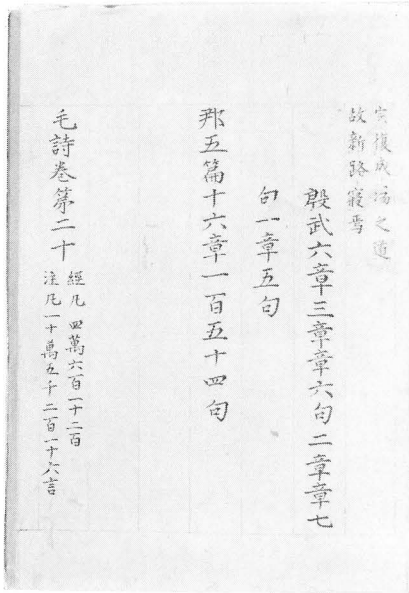 实復成湯之道
故新路寢焉
殷武六章三章章六句二章章七
句一章五句
那五篇十六章一百五十四句
毛詩卷第二十
經凡四萬六百一十二百
注凡一十萬五千二百一十六言